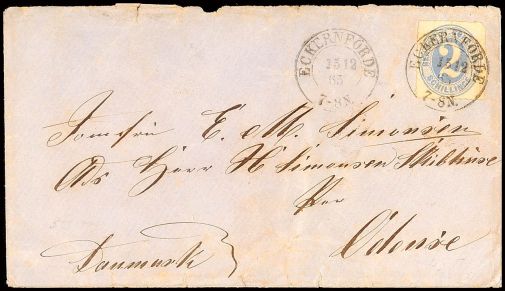 ECKERNFÖRDE
15 12
65
7-8N.
ECKERNFÖRDE
15 12
7-8N.
2
SCHILLINGE
Jomfru E. M. Simonsen
Ads Herr H Simonsen Skibhuse
Per
Odense
Danmark